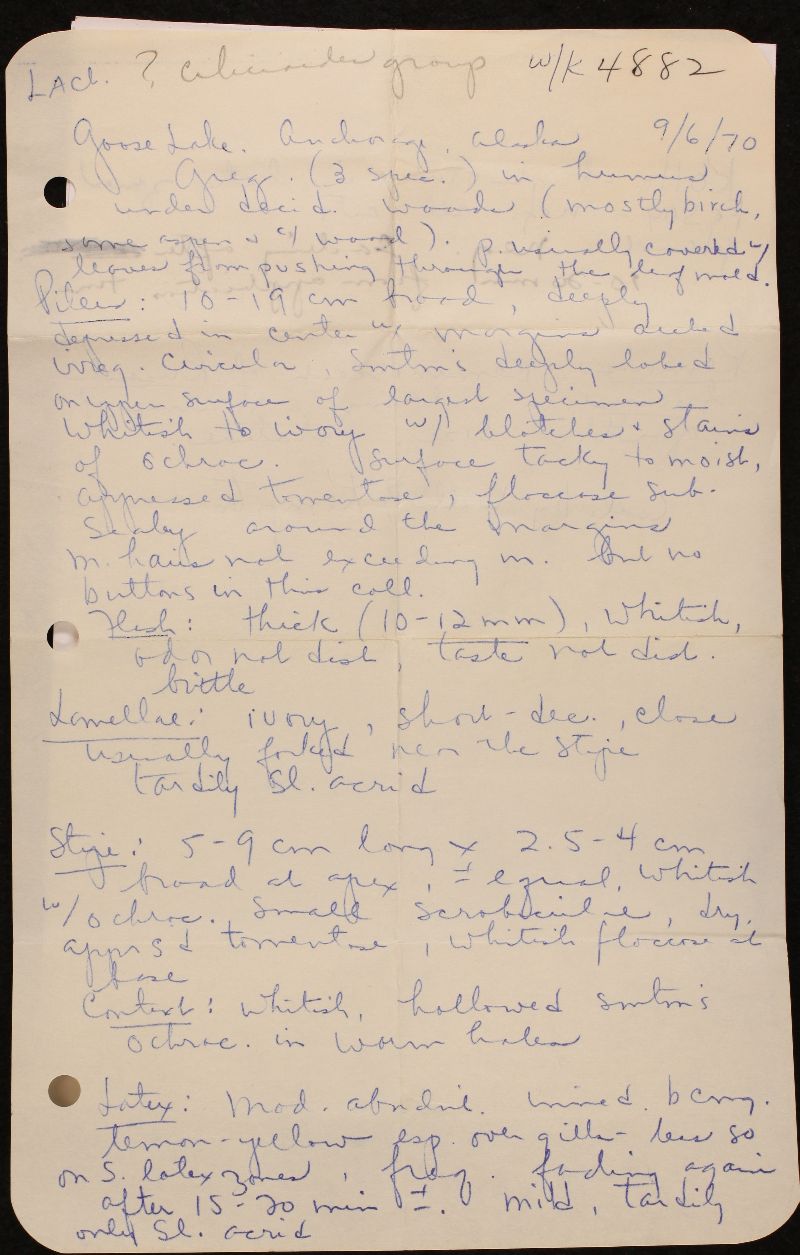 Lact. ? cilicioides group W/K 4882
Goose Lake. Anchorage, Alaska 9/6/70
Greg. (3 spec.) in humus
under decid. woods (mostly birch,
some aspen & c/ wood). p. usually covered w/
leaves from pushing through the leaf mold.
Pileus: 10-19 cm broad, deeply
depressed in center w/ margins arched
irreg. circular, smtm's deeply lobed
on upper surface of largest specimen
Whitish to ivory w/ blotches & stains
of ochrac. Surface tacky to moist,
appressed tomentose, floccose sub-
scaly around the margins
m. hairs not exceeding m. but no
buttons in this coll.
Flesh: thick (10-12 mm), whitish,
odor not dist, taste not dist.
brittle
Lamellae: ivory, short-dec., close
usually forked near the stipe
tardily sl. acrid
Stipe: 5-9 cm long x 2.5-4 cm
broad at apex, ± equal, whitish
w/ ochrac. small scrobiculae, dry,
apprs'd tomentose, whitish floccose at
base
Context: whitish, hollowed smtm's
ochrac. in worm holes
Latex: Mod. abndnt. immed. bcmg.
lemon-yellow esp. over gills - less so
on s. latex zones, freq. fading again
after 15-20 min ±. mild, tardily
only sl. acrid